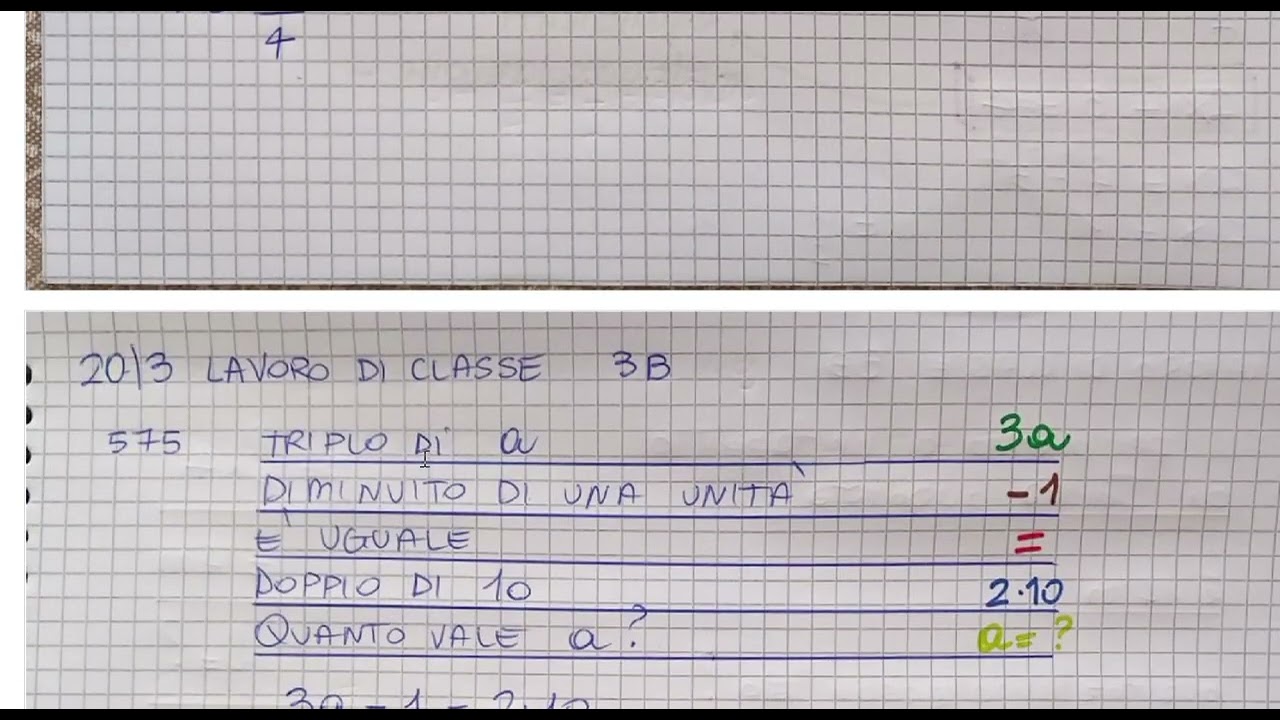 4
20/3 LAVORO DI CLASSE 3B
575 TRIPLO DI a 3a
DIMINUITO DI UNA UNITÀ -1
È UGUALE =
DOPPIO DI 10 2·10
QUANTO VALE a? a=?
3a - 1 = 2·10